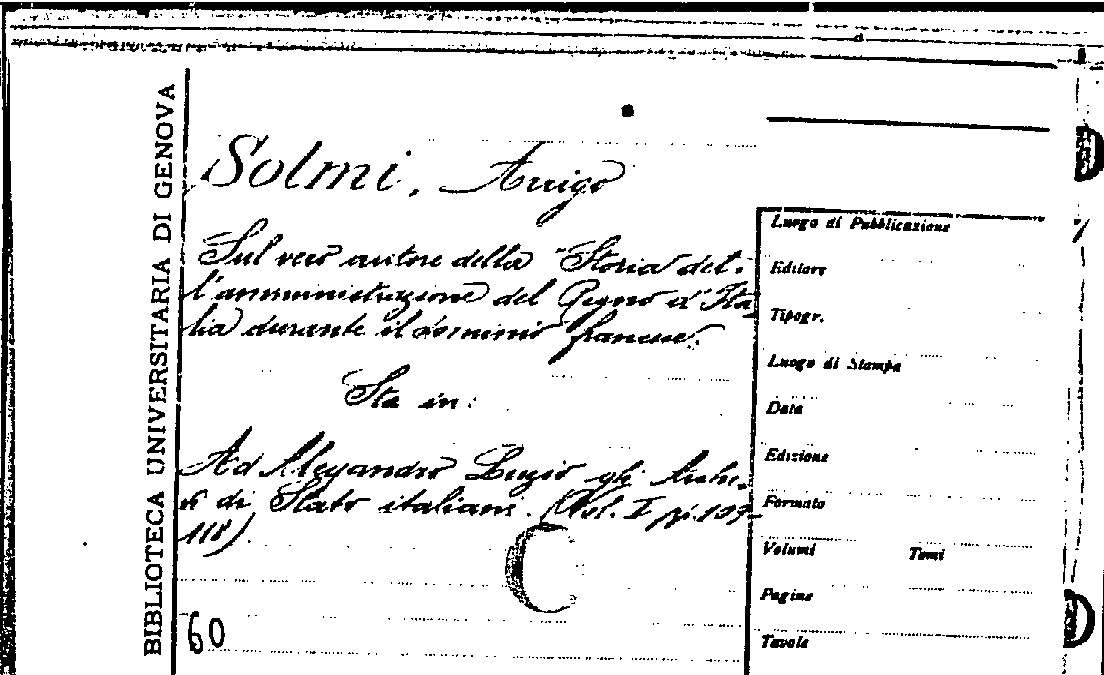 BIBLIOTECA UNIVERSITARIA DI GENOVA
Solmi, Arrigo
Sul vero autore della "Storia del-
l'amministrazione del Regno d'Ita-
lia durante il dominio francese".
Sta in:
Ad Alessandro Luzio gli Archi-
vi di Stato italiani. (Vol. I pp. 109-
118)
C
60
Luogo di Pubblicazione
Editore
Tipogr.
Luogo di Stampa
Data
Edizione
Formato
Volumi Tomi
Pagine
Tavole